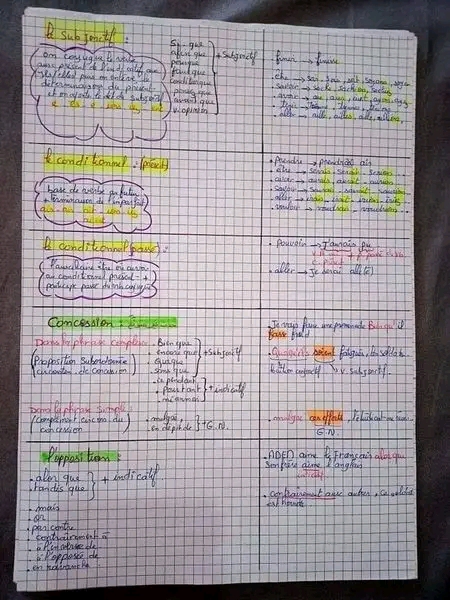 le subjonctif :
on conjugue le verbe
au présent de l'indicatif avec
ils/elles puis on enlève la
terminaison du présent
et on ajoute celle du subjonctif
e es e ions iez ent
que
afin que
pourque
faut que
avant que
v. opinion
+ Subjonctif
finir → finisse
être → sois, sois, soit, soyons, soyez
savoir → sache, saches, sache
avoir → aie, aies, ait, ayons, ayez
aller → aille, ailles, aille, allions
le conditionnel : (présent)
base de verbe au futur
+ terminaison de l'imparfait
ais ais ait ions iez
aient
prendre → prendr(e) ais
être → serais, serais, serions
avoir → aurais, aurait, aurions
savoir → saurais, saurait, saurions
aller → irais, irait, irions, iriez
vouloir → voudrais, voudrions
le conditionnel (passé) :
l'auxiliaire être ou avoir
au conditionnel présent +
participe passé du verbe conjugué
pouvoir → J'aurais pu
aller → Je serais allé(e)
Concession :
Dans la phrase complexe
(Proposition Subordonnée
circonstan. de concession)
Bien que
encore que
Quoique
Sans que
+ Subjonctif
cependant
pourtant
néanmoins
+ indicatif
Je vais faire une promenade Bien qu'il
fasse froid
soient fatigués, les soldats
v. Subjonctif
Dans la phrase Simple :
(complément circons du
concession
malgré
en dépit de
+ G.N.
malgré ces efforts, l'étudiant
G.N.
l'opposition :
alors que
tandis que
+ indicatif
mais
or
par contre
contrairement à
à l'inverse de
à l'opposée de
en revanche
aime le Français alors que
son frère aime l'anglais
contrairement aux autres, ce
est honnête